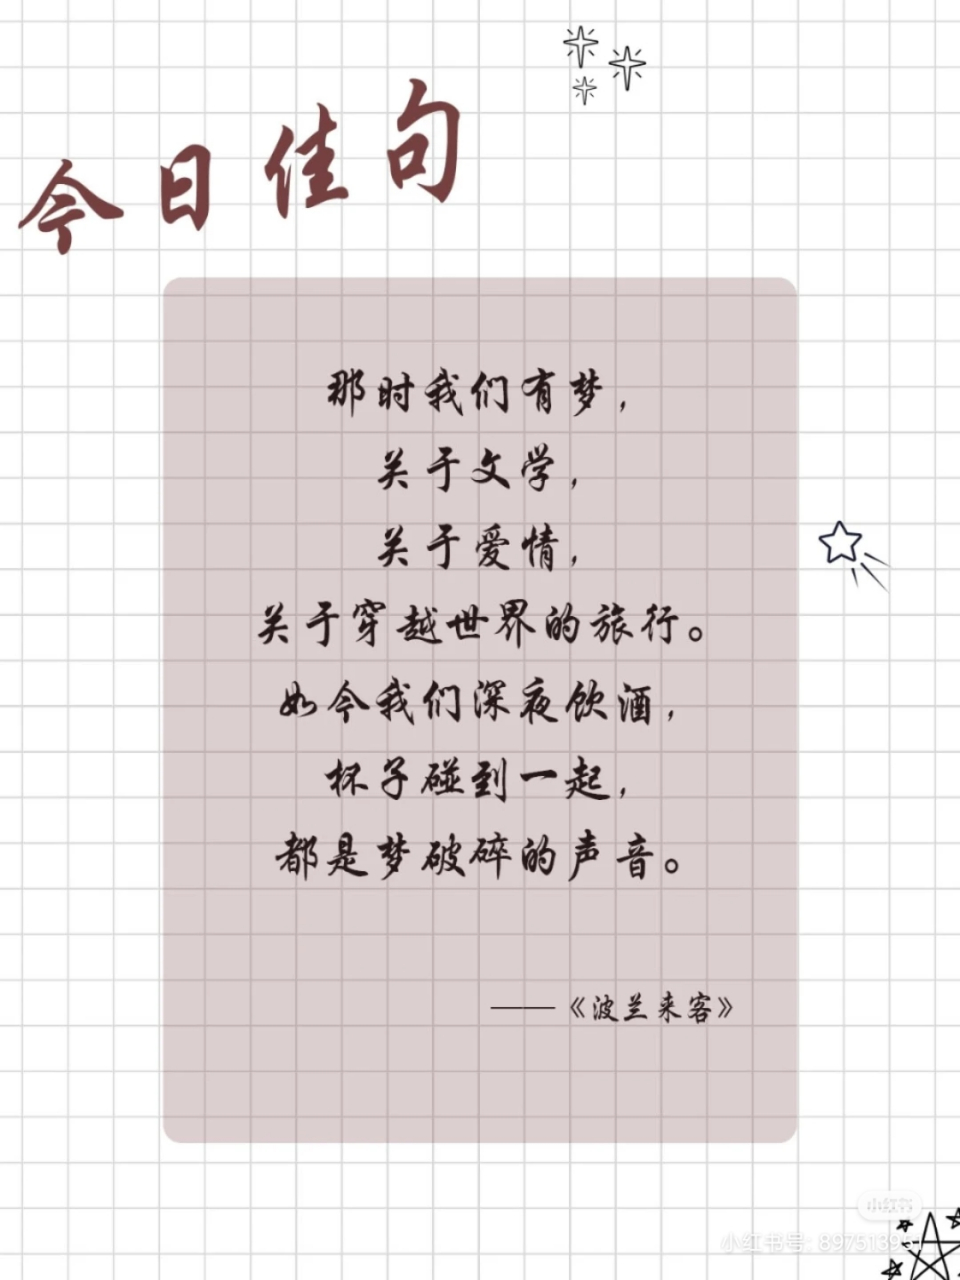 今日佳句
那时我们有梦，
关于文学，
关于爱情，
关于穿越世界的旅行。
如今我们深夜饮酒，
杯子碰到一起，
都是梦破碎的声音。
——《波兰来客》
小红书
小红书号: 897513951